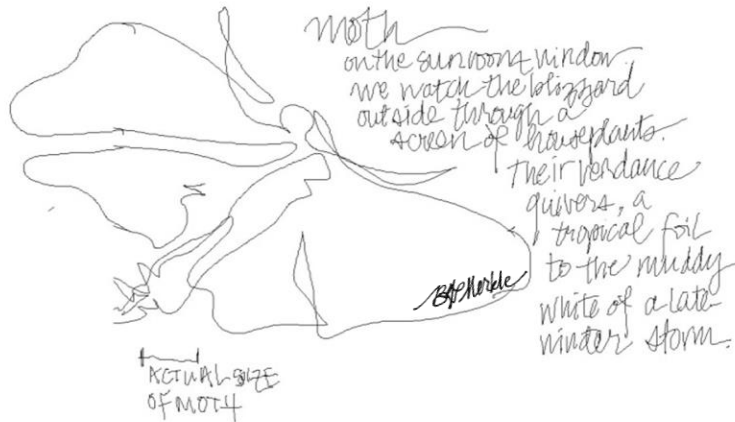 moth
on the sunroom window.
we watch the blizzard
outside through a
screen of houseplants.
Their verdance
quivers, a
tropical foil
to the muddy
white of a late-
winter storm.
BG Merkle
ACTUAL SIZE
OF MOTH